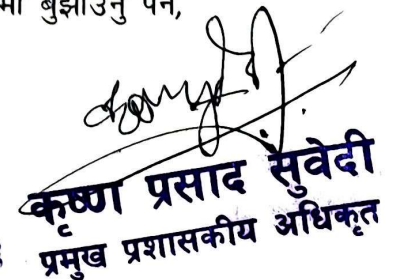 बुझाउनु पर्ने,
कृष्ण प्रसाद सुवेदी
प्रमुख प्रशासकीय अधिकृत